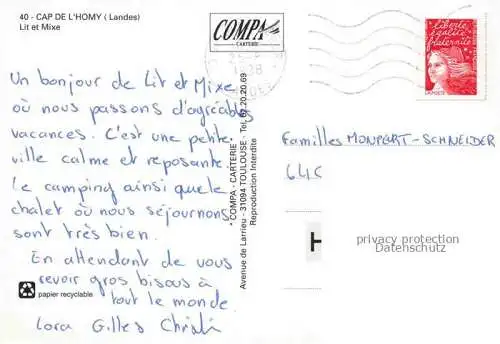 40 - CAP DE L'HOMY ( Landes)
Lit et Mixe
COMPA
CARTERIE
liberté
égalité
fraternité
Un bonjour de Lit et Mixe
où nous passons d'agréables
vacances. C'est une petite
ville calme et reposante.
Le camping ainsi que le
chalet où nous séjournons
sont très bien.
En attendant de vous
revoir gros bisous à
tout le monde.
Lora Gilles
papier recyclable
" COMPA - CARTERIE "
Avenue de Larrieu - 31094 TOULOUSE - Tel. 62.20.20.69
Reproduction Interdite
Familles MONPERT-SCHNEIDER
64C
privacy protection
Datenschutz